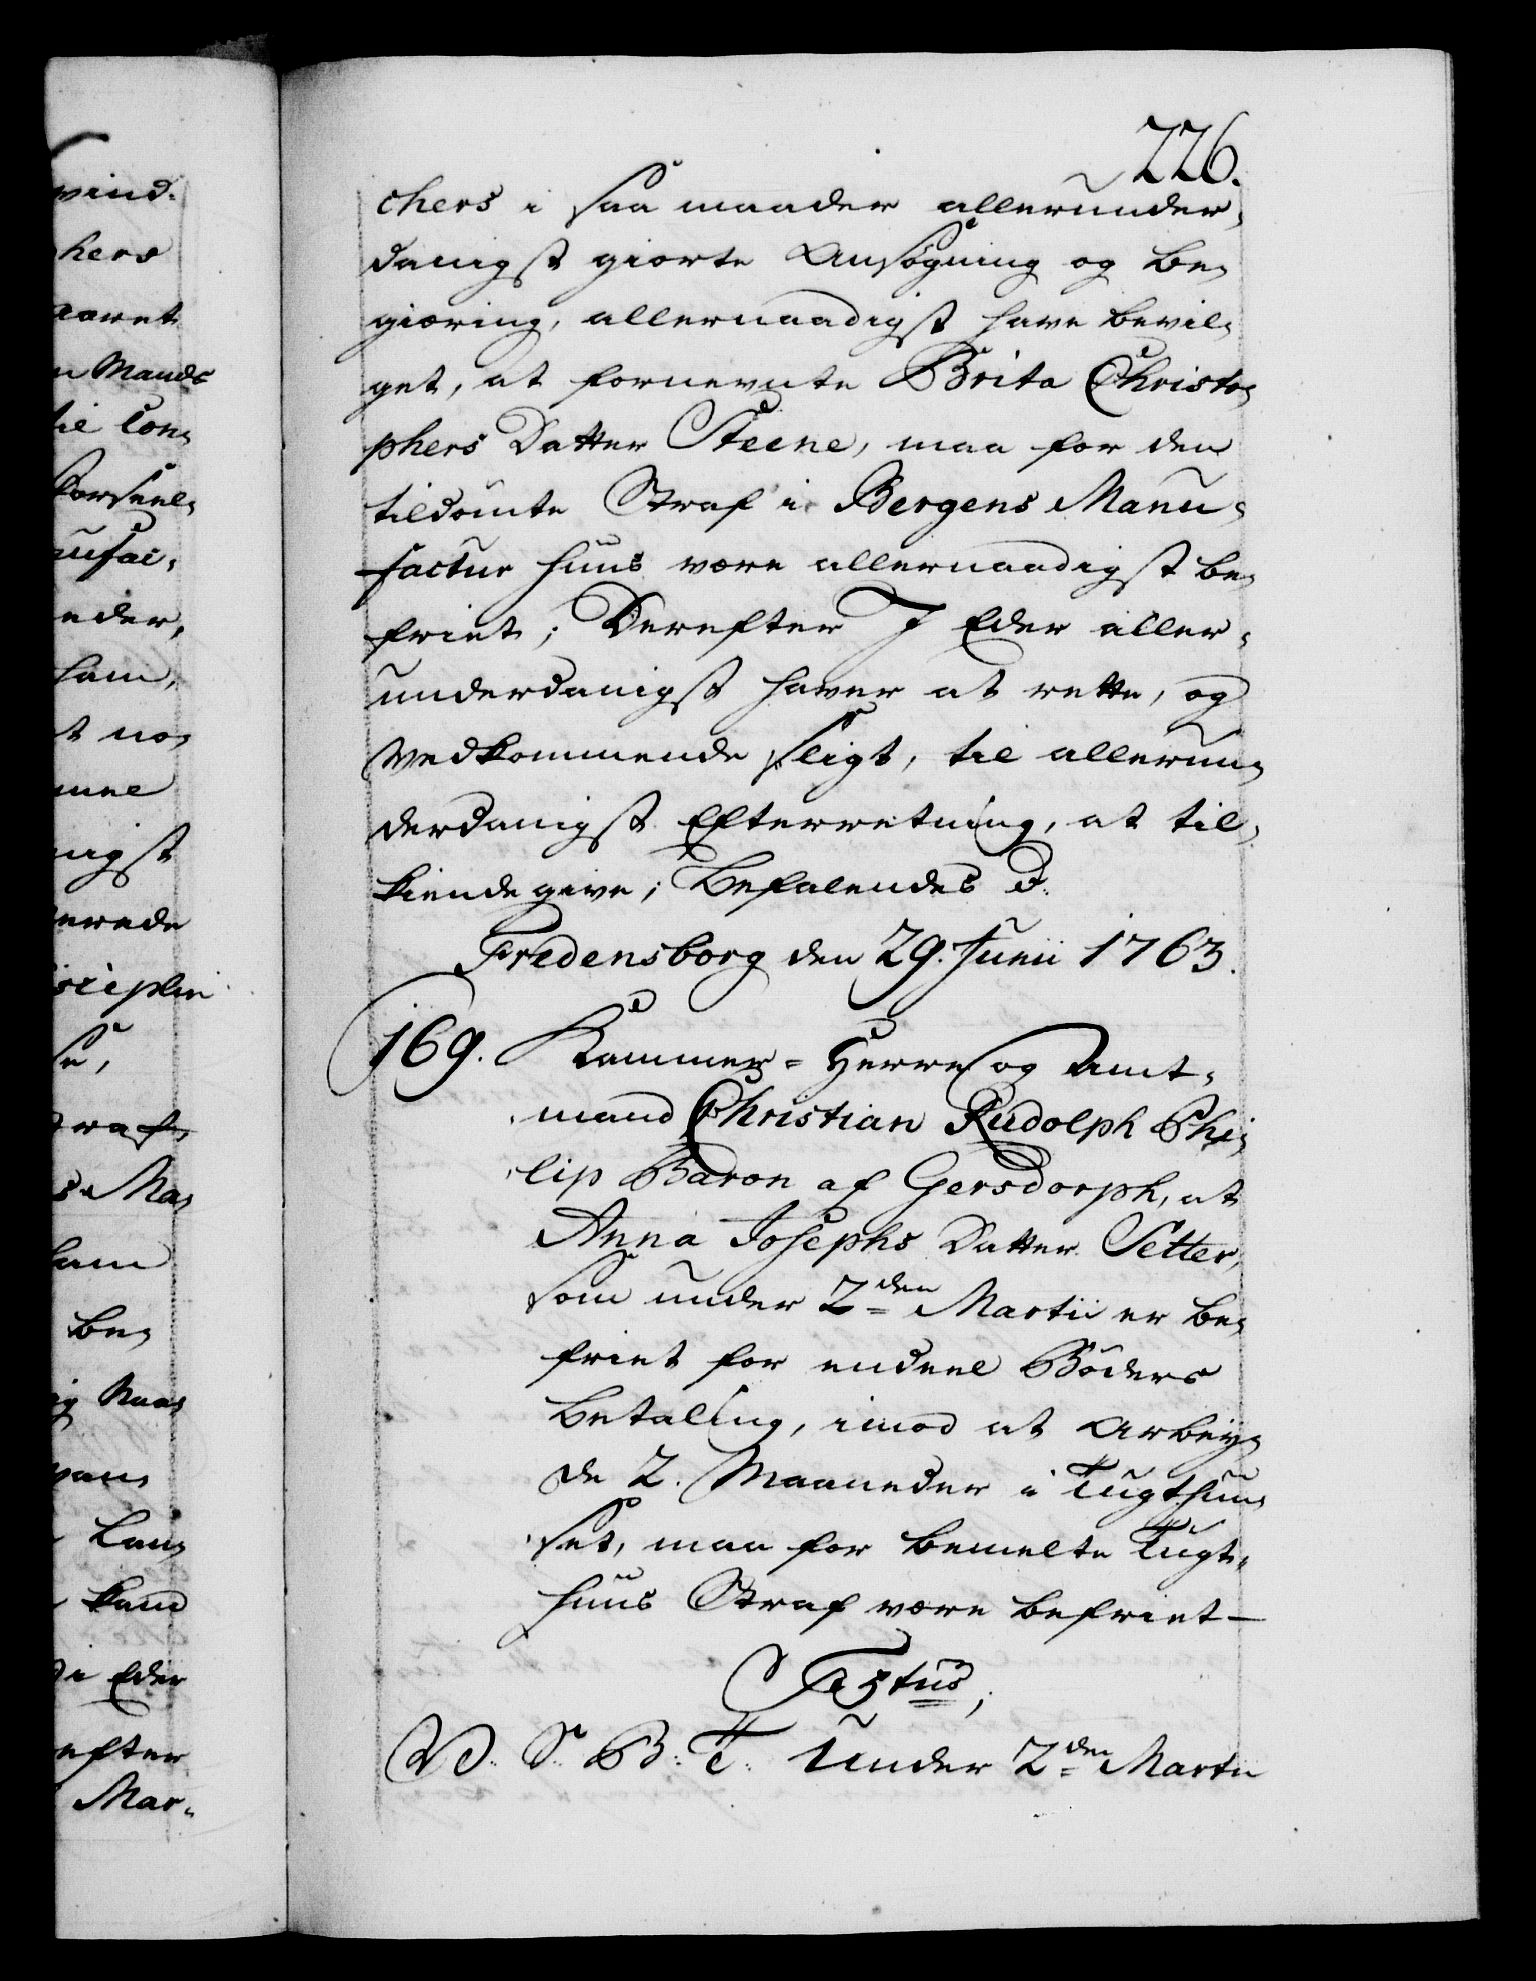 226.
chers i saa maader allerunder-
danigst giorte Ansøgning og be-
giæring, allernaadigst have bevil-
get, at fornevnte Brita Christo-
phers Datter Steene, maa for den
tildømte Straf i Bergens Manu-
factur Huus være allernaadigst be-
friet; Derefter I Eder aller-
underdanigst haver at rette, og
Vedkommende sligt, til allerun-
derdanigst Efterretning, at til-
kiende give; Befalendes d.
Fredensborg den 29. Junii 1763.
169. Kammer-Herre og Amt-
mand Christian Rudolph Phi-
lip Baron af Gersdorph, at
Anna Josephs Datter Setter,
som under 2den Martii er be-
friet for endeel Bøders
Betaling, imod at Arbey-
de 2. Maaneder i Tugthuu-
set, maa for bemelte Tugt-
huus Straf være befriet—
V. S. B. T. Under 2den Martii
vind-
hers
aaret
n Mands
til Con-
eder,
ham,
t no-
nigst
erede
disciplin
se,
Straf,
s Ma-
ham
be-
kand
i Eder
efter
Mar-